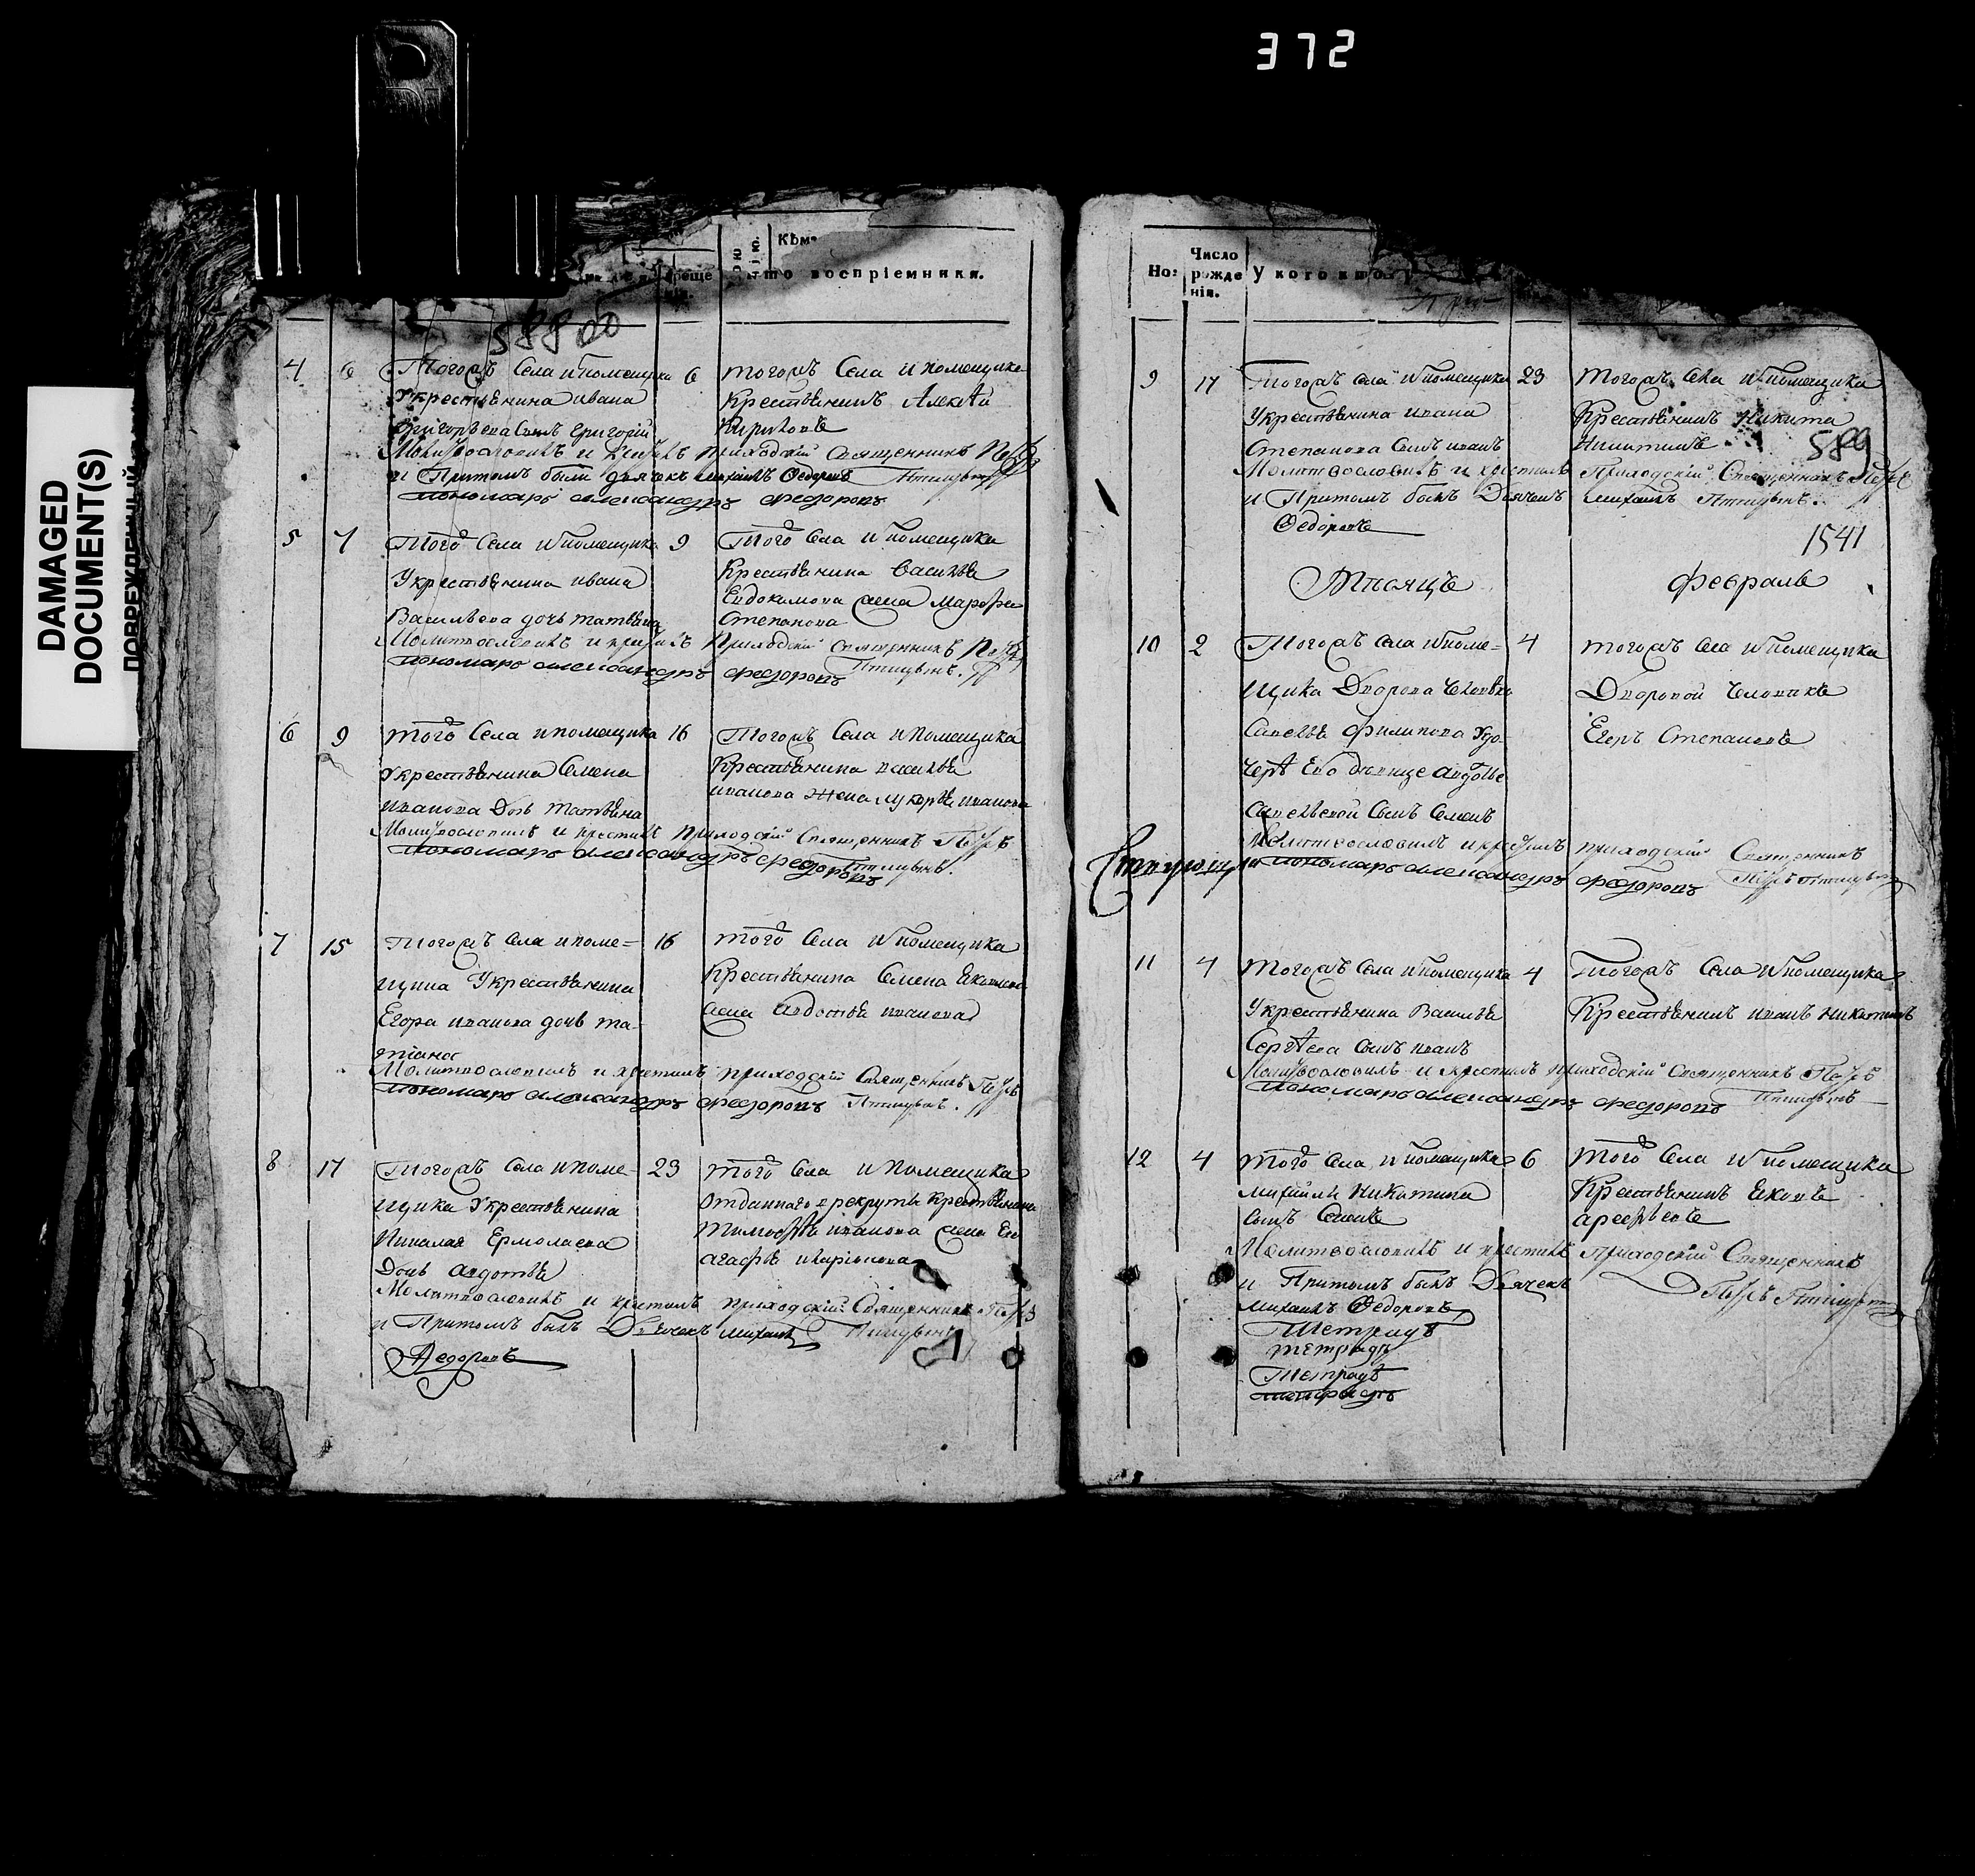 372
DAMAGED
DOCUMENT(S)
ПОВРЕЖДЕННЫЙ
Кѣм
то воспріемники.
588
4 6 Тогожъ Села и помещика 6 тогожъ Села и помещика
Укрестьянина ивана Крестьянинъ Алексѣй
Григорьева Сынъ Григорій
Молитвословилъ и крестилъ приходскій Священникъ Петръ
и Притомъ были дьячекъ михаилъ Федоровъ Птицынъ
пономарь александръ федоровъ
5 7 Того Села и помещика 9 Того Села и помещика
Укрестьянина ивана Крестьянина Василья
Евдокимова жена Марфа
Васильева дочь татьяна Степанова
Молитвословилъ и крестилъ Приходскій Священникъ Петръ
пономарь александръ федоровъ Птицынъ.
6 9 того Села и помещика 16 Тогожъ Села и помещика
Укрестьянина Семена Крестьянина василья
иванова Дочь татьяна иванова Жена лукерья иванова
Молитвословилъ и крестилъ приходскій Священникъ Петръ
пономарь александръ федоровъ Птицынъ.
7 15 Тогожъ Села и поме= 16 того Села и помещика
щика Укрестьянина Крестьянина Семена
Егора иванова дочь та- жена авдотья иванова
тіана
Молитвословилъ и крестилъ приходскій Священникъ Петръ
пономарь александръ федоровъ Птицынъ.
8 17 Тогожъ Села и поме- 23 того Села и помещика
щика Укрестьянина отданнаго в рекруты крестьянина
Николая Ермолаева тимофѣя иванова жена Ево
Дочь авдотья агафья
Молитвословилъ и крестилъ приходскій Священникъ Петръ
и Притомъ былъ Дьячекъ михаилъ Птицынъ
Федоровъ
Но: Число рожденія. У кого кто
9 17 Тогожъ Села и помещика 23 тогожъ Села и помещика
Укрестьянина ивана Крестьянинъ Никита
Степанова Сынъ иванъ
589
Молитвословилъ и крестилъ Приходскій Священникъ Петръ
и Притомъ былъ Дьячекъ михаилъ Птицынъ.
Федоровъ
1541
Мѣсяцъ февраль
10 2 Тогожъ Села и поме= 4 тогожъ Села и помещика
щика Дворова человѣка Дворовой человѣкъ
Савелья филипова Удо- Егоръ Степановъ
черѣ Ево девице авдотье
Савельевой Сынъ Семенъ
Молитвословилъ и крестилъ приходскій Священникъ
пономарь александръ федоровъ Петръ Птицынъ
11 4 Тогожъ Села и помещика 4 Тогожъ Села и помещика
Укрестьянина Василья Крестьянинъ иванъ никитинъ
Сергѣева Сынъ иванъ
Молитвословилъ и крестилъ приходскій Священникъ Петръ
пономарь александръ федоровъ Птицынъ
12 4 того Села и помещика 6 того Села и помещика
михаилы Никитина Крестьянинъ Яковъ
Сынъ Семенъ арсеньевъ
Молитвословилъ и крестилъ Приходскій Священникъ
и Притомъ былъ Дьячекъ Петръ Птицынъ
михаилъ Федоровъ
Тетрадь
тетрадь
Тетрадь
тетрадь